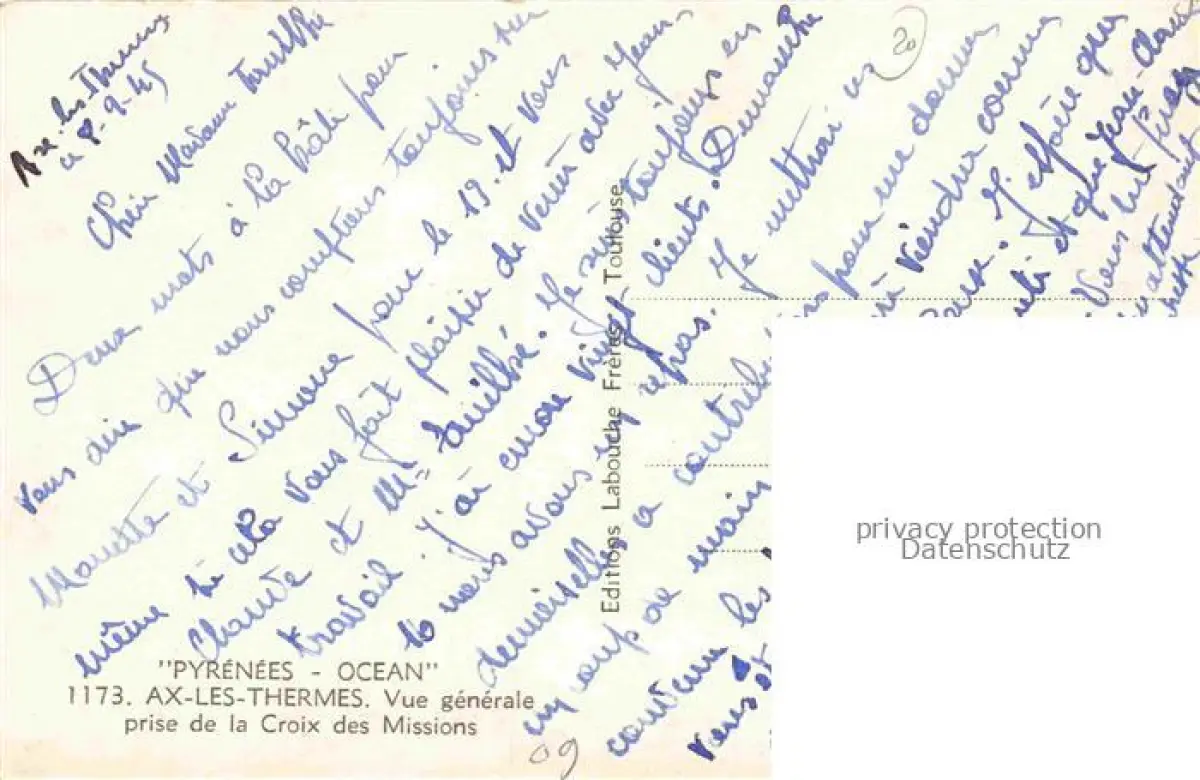 Ax-les-Thermes
a 8-9-45
Chère Madame
Deux mots à la hâte pour
vous dire que nous comptions toujours sur
Mariette et Simone pour le 19. et vous
même si cela vous fait plaisir de venir avec Jean-
Claude et Mr. Je suis toujours en
travail. J'ai encore vingt clients. Dimanche
16 nous avons un repas. Je mettrai ces
demoiselles à contribu pour me donner
un coup de main viendra comme
convenu les J'espère que
vous et et que Jean-Claude
vous
attendant
20
09
Editions Labouche Frères Toulouse
"PYRÉNÉES - OCEAN"
1173. AX-LES-THERMES. Vue générale
prise de la Croix des Missions
privacy protection
Datenschutz